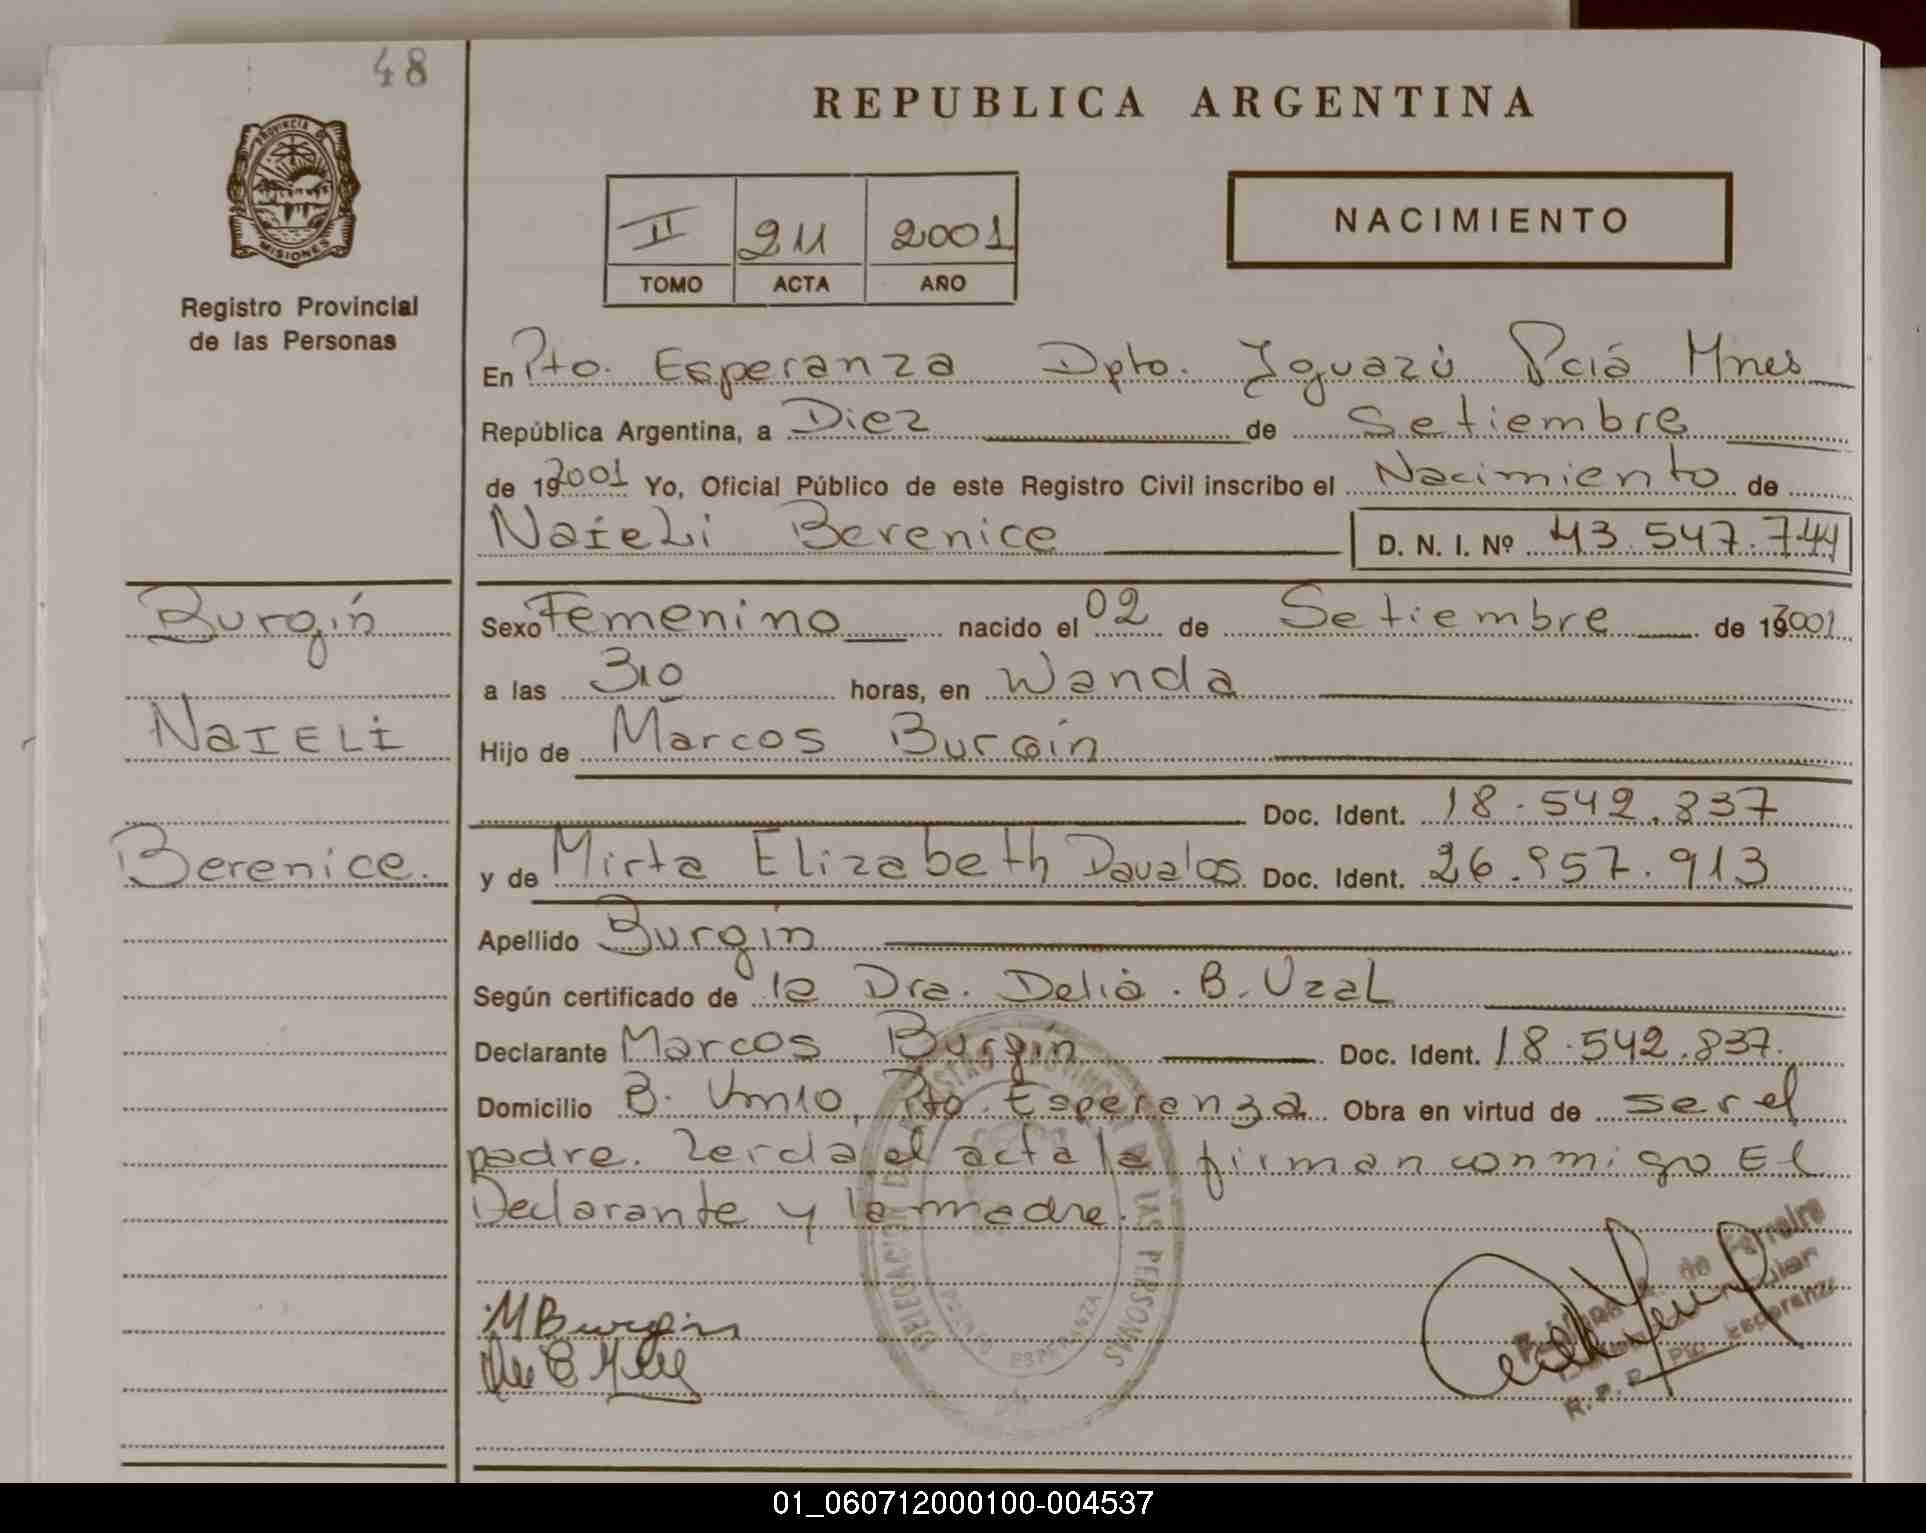 48
REPUBLICA ARGENTINA
PROVINCIA DE
MISIONES
Registro Provincial
de las Personas
II 211 2001
TOMO ACTA AÑO
NACIMIENTO
En Pto. Esperanza Dpto. Iguazú Pciá Mnes
República Argentina, a Diez de Setiembre
de 192001 Yo, Oficial Público de este Registro Civil inscribo el Nacimiento de
NaieLi Berenice D. N. I. Nº 43.547.744
Burgin
NaIELi
Berenice.
Sexo Femenino nacido el 02 de Setiembre de 192001
a las 310 horas, en Wanda
Hijo de Marcos Burgin
Doc. Ident. 18.542.837
y de Mirta Elizabeth Davalos Doc. Ident. 26.957.913
Apellido Burgin
Según certificado de la Dra. Delia. B. Uzal
Declarante Marcos Burgin Doc. Ident. 18.542.837.
Domicilio B. Unio, Pto. Esperanza Obra en virtud de ser el
padre. Leida el acta la firman conmigo El
Declarante y la madre.
DELEGACION DEL REGISTRO PROVINCIAL DE LAS PERSONAS
PUERTO ESPERANZA
MBurgin
de Ferreira
Titular
R. P. P. Pto. Esperanza
01_060712000100-004537